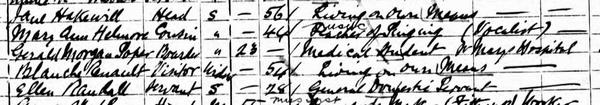 Jane Hakewill Head S — 56 Living on Own Means —
Mary Ann Helmore Cousin " — 44 Teacher of Singing (Vocalist) —
music
Gerald Morgan Boarder " 23 — Medical Student St Marys Hospital
Blanche Visitor Widow — 54 Living on Own Means —
Ellen Randall Servant S — 28 General Domestic Servant —